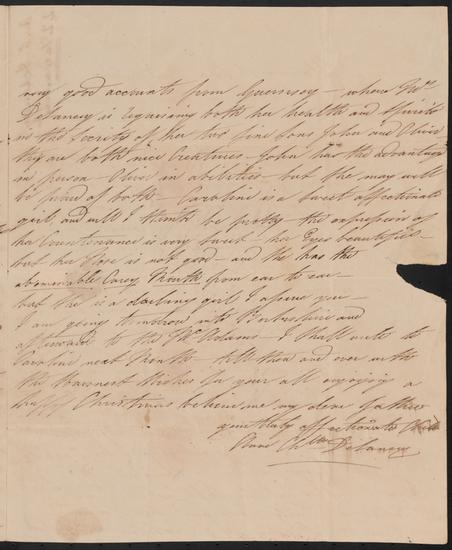 very good accounts from Guernsey – where Mrs.
Delancey is regaining both her health and spirits
in the society of her two fine sons John and Oliver
they are both nice Creatures – John has the advantage
in person – Oliver in abilities – but she may well
be proud of both – Caroline is a sweet affectionate
girl, and will I think be pretty – the expression of
her Countenance is very sweet – her Eyes beautiful –
but her Nose is not good – and she has the
abominable Carey Mouth from ear to ear –
but she is a darling girl I assure you –
I am going tomorrow into and
afterward to the McAdams – I shall write to
Caroline next Month – till then and ever with
the warmest Wishes for your all enjoying a
happy Christmas believe me my dear father
your truly affectionate Child
Anne Chtte Delancey